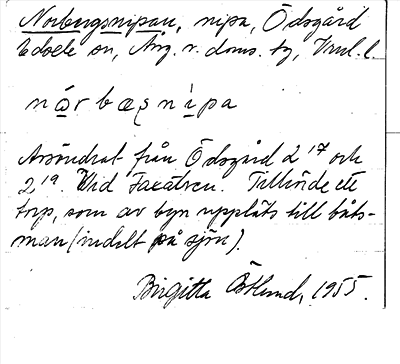 Norbergsnipan, nipa, Ödsgård
Edsele sn, Ång. v. doms. tg, Vnrl. l.
nọ́rbæʂnìpa
Avsöndrat från Ödsgård 2¹⁷ och
2¹⁹. Vid Faxälven. Tillhörde ett
torp, som av byn uppläts till båts-
man (indelt på sjön).
Birgitta Östlund, 1955.